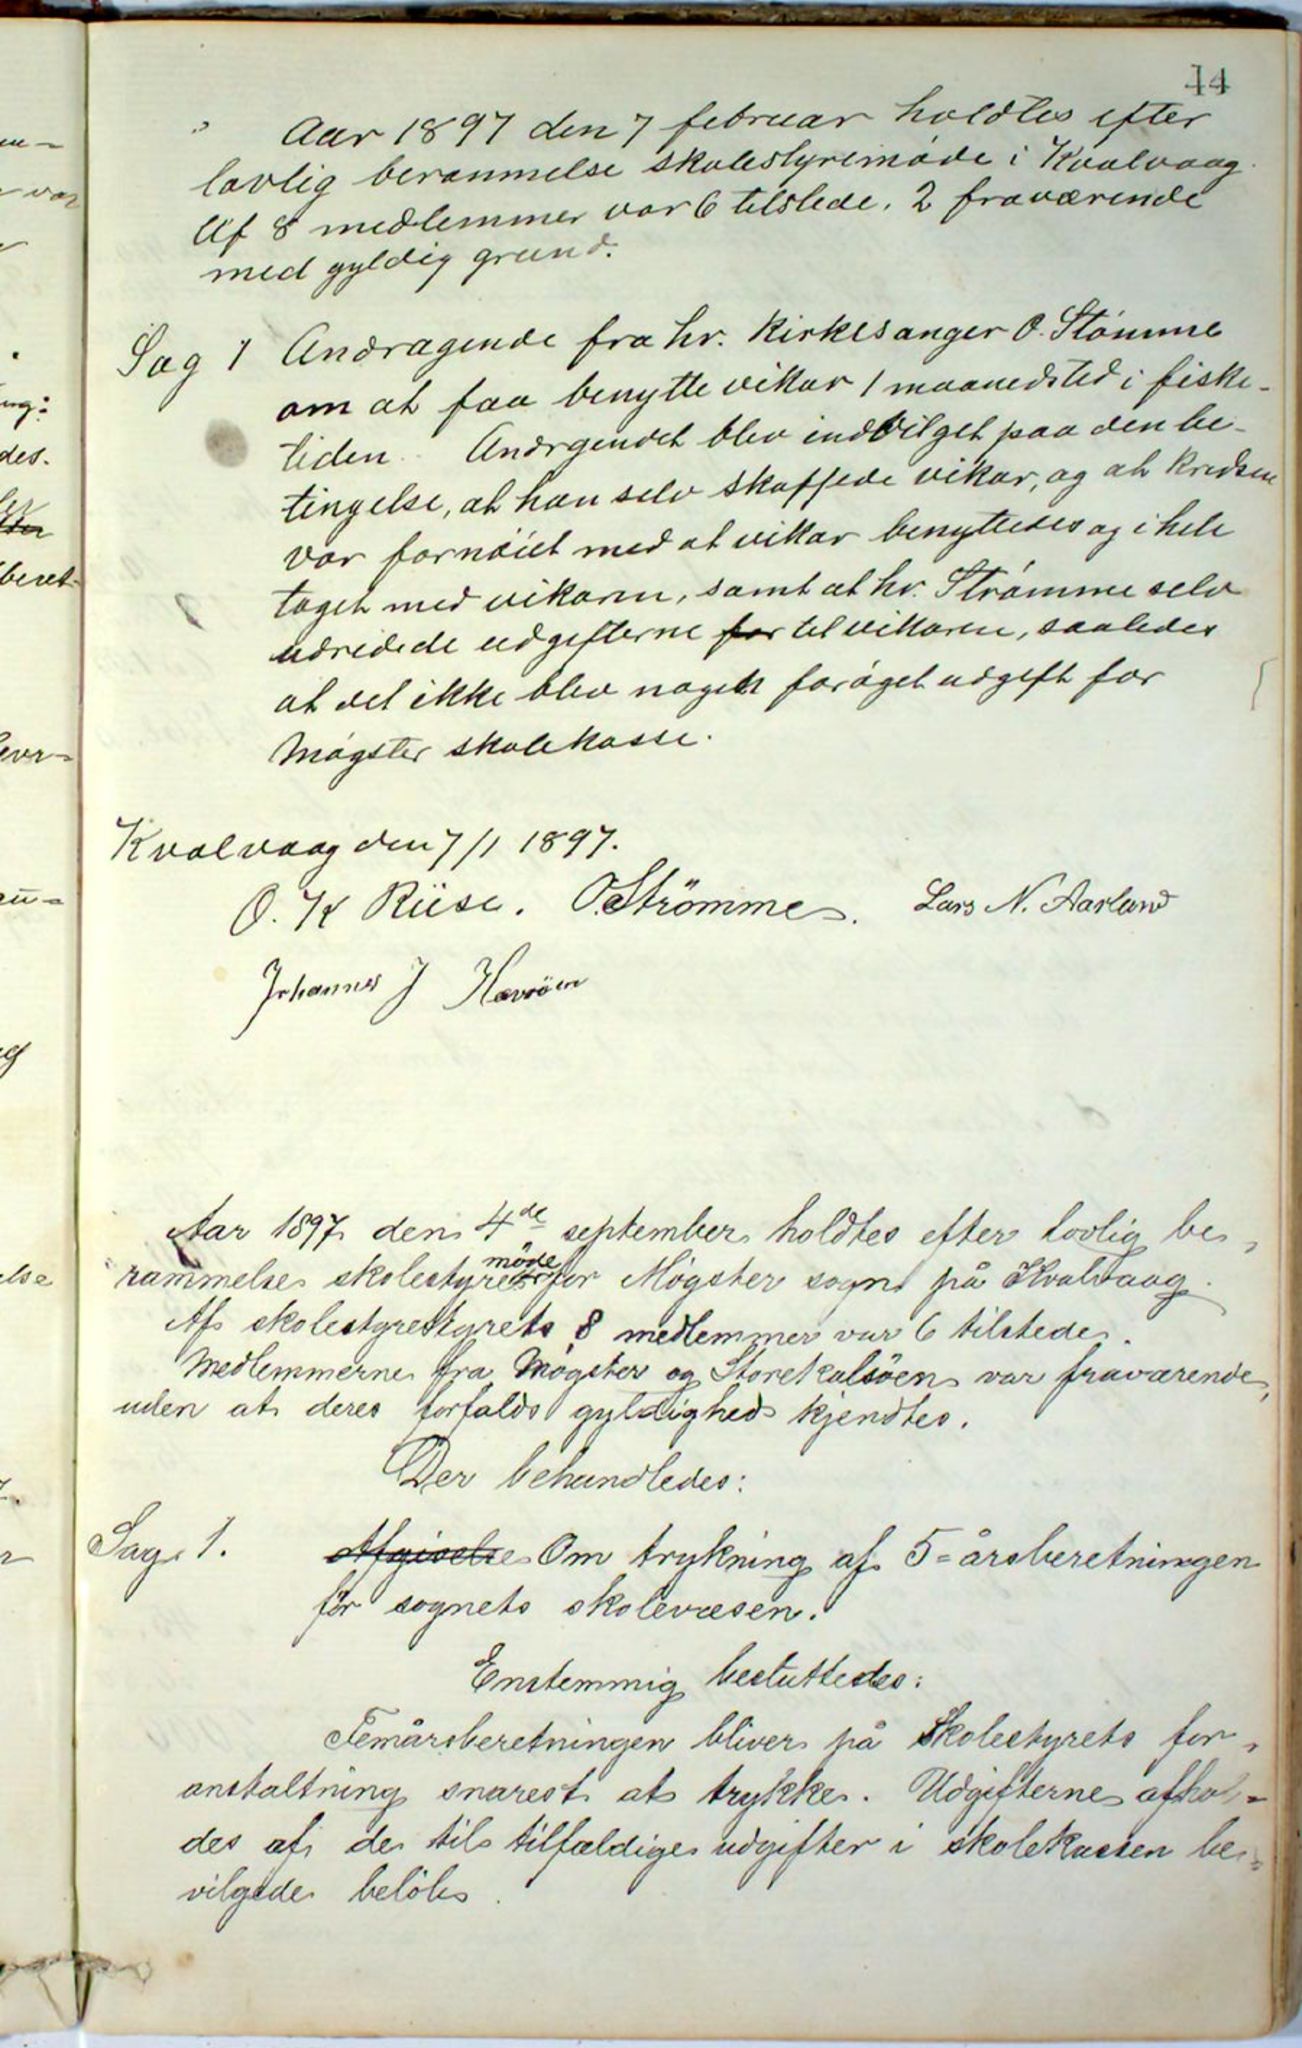 44
Aar 1897 den 7 februar holdtes efter
lovlig berammelse skolestyremøde i Kvalvaag.
Af 8 medlemmer var 6 tilstede. 2 fraværende
med gyldig grund.
Sag 1 Andragende fra hr. Kirkesanger O. Stømme
om at faa benytte vikar 1 maanedstid i fiske-
tiden. Andrgendet blev indvilget paa den be-
tingelse, at han selv skaffede vikar, og at Kredsen
var fornøiet med at vikar benyttedes og i hele
taget med vikaren, samt at hr. Strømme selv
udredede udgifterne for til vikaren, saaledes
at det ikke blev noget forøget udgift for
Møgster skolekasse.
Kvalvaag den 7/1 1897.
O. K Riise. O. Strömme. Lars N. Aarland
Johannes J Hevrøen
Aar 1897 den 4de september holdtes efter lovlig be-
rammelse skolestyremøde for Møgster sogn på Kvalvaag.
Af skolestyrestyrets 8 medlemmer var 6 tilstede.
Medlemmerne fra Møgster og Storekalsöen var fraværende,
uden at deres forfalds gyldighed kjendtes.
Der behandledes:
Sag 1. Afgivelse Om trykning af 5-årsberetningen
for sognets skolevæsen.
Enstemmig besluttedes:
Femårsberetningen bliver på Skolestyrets for-
anstaltning snarest at trykke. Udgifterne afhol-
des af de til tilfældige udgifter i skolekassen be-
vilgede belöb.